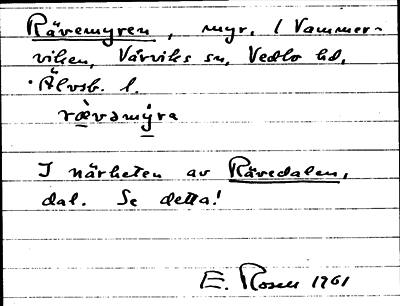 Rävemyren, myr. / Vammer-
viken, Värviks sn, Vedbo hd,
Älvsb. l.
rævəmýra
I närheten av Rävedalen,
dal. Se detta!
E. Rosell 1961